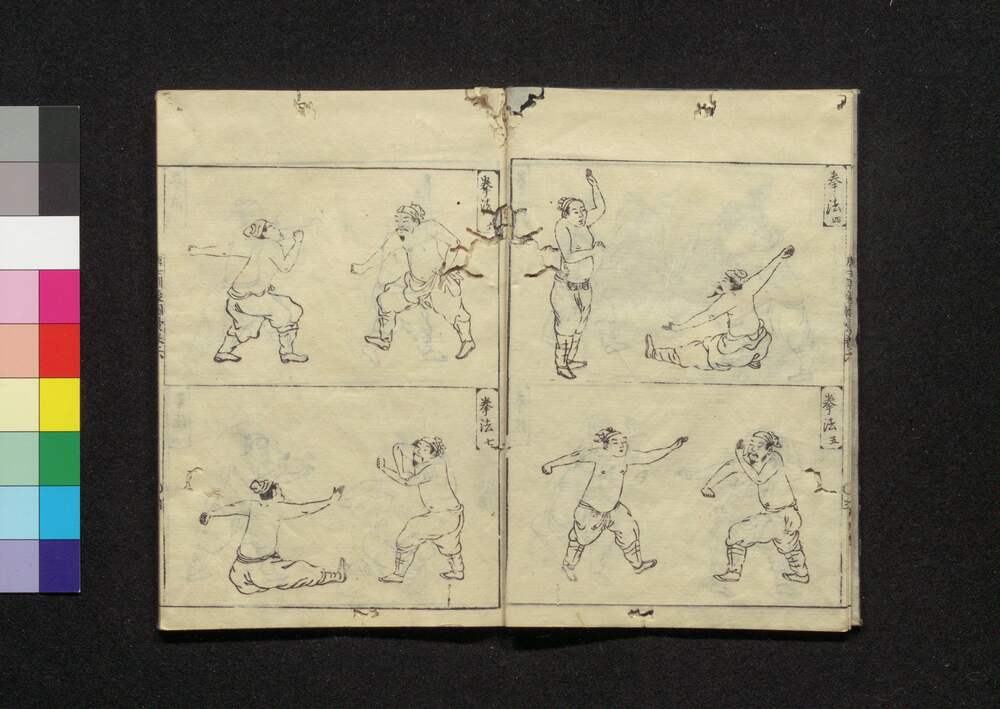 拳法四
拳法五
拳法
拳法七